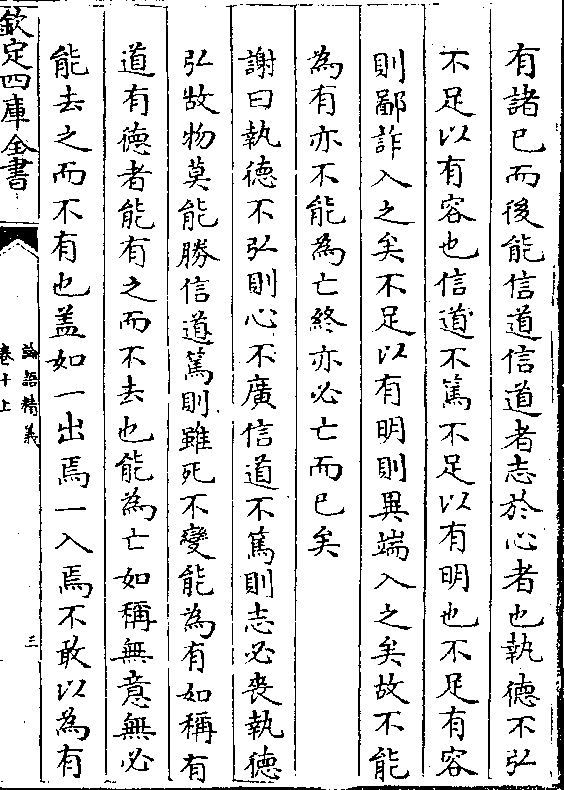 有諸已而後能信道信道者志於心者也執德不弘
不足以有容也信道不篤不足以有明也不足有容
則鄙詐入之矣不足以有明則異端入之矣故不能
為有亦不能為亡終亦必亡而已矣
謝曰執德不弘則心不廣信道不篤則志必喪執德
弘故物莫能勝信道篤則雖死不變能為有如稱有
道有德者能有之而不去也能為亡如稱無意無必
能去之而不有也盖如一出焉一入焉不敢以為有
欽定四庫全書
論語精義
卷十上
三